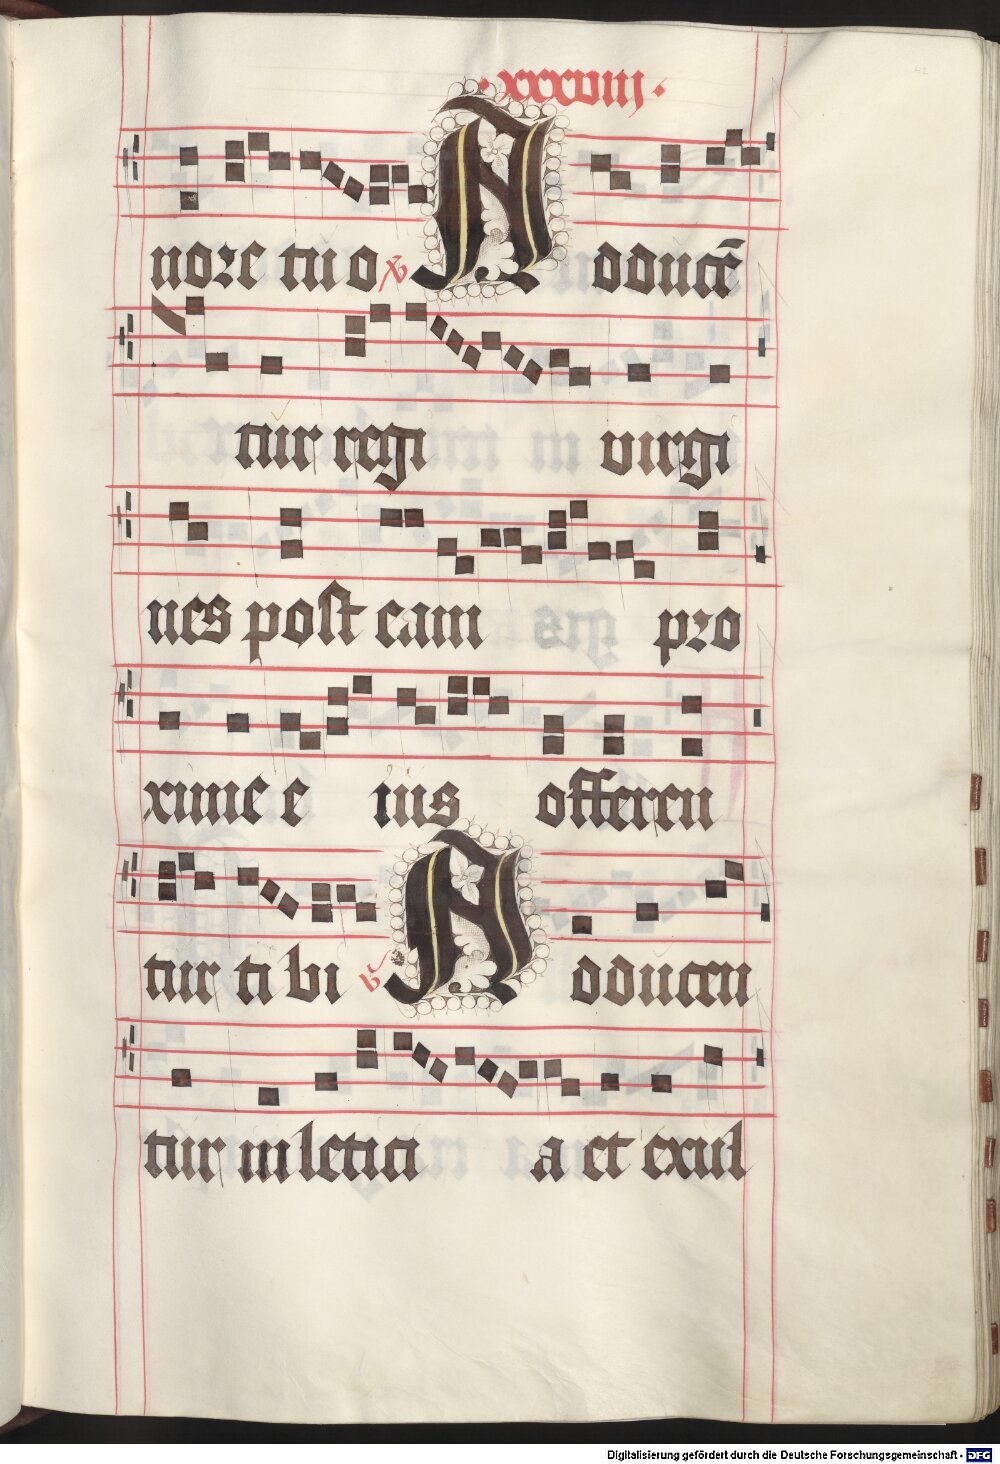 ·xxxviiij·
nore tuo ℟ Adducē
tur regi virgi
nes post eam pro
xime e ius offeren
tur ti bi ℣ Adducen
tur in leticia a et exul
Digitalisierung gefördert durch die Deutsche Forschungsgemeinschaft - DFG